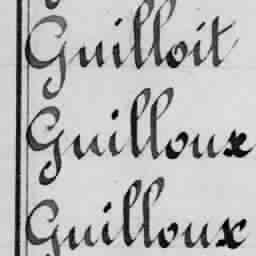 Guilloit
Guilloux
Guilloux